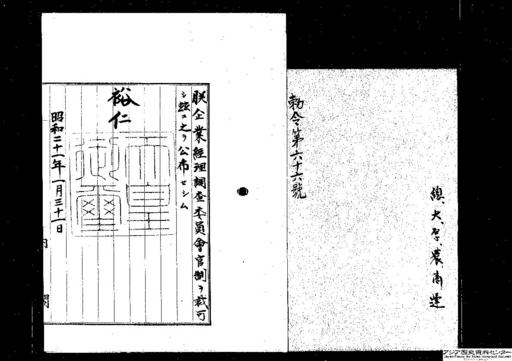 總、大、厚、農、商、運
勅令第六十六號
朕企業經理調査委員會官制ヲ裁可
シ玆ニ之ヲ公布セシム
裕仁
天皇御璽
昭和二十一年一月三十一日
内閣
アジア歴史資料センター